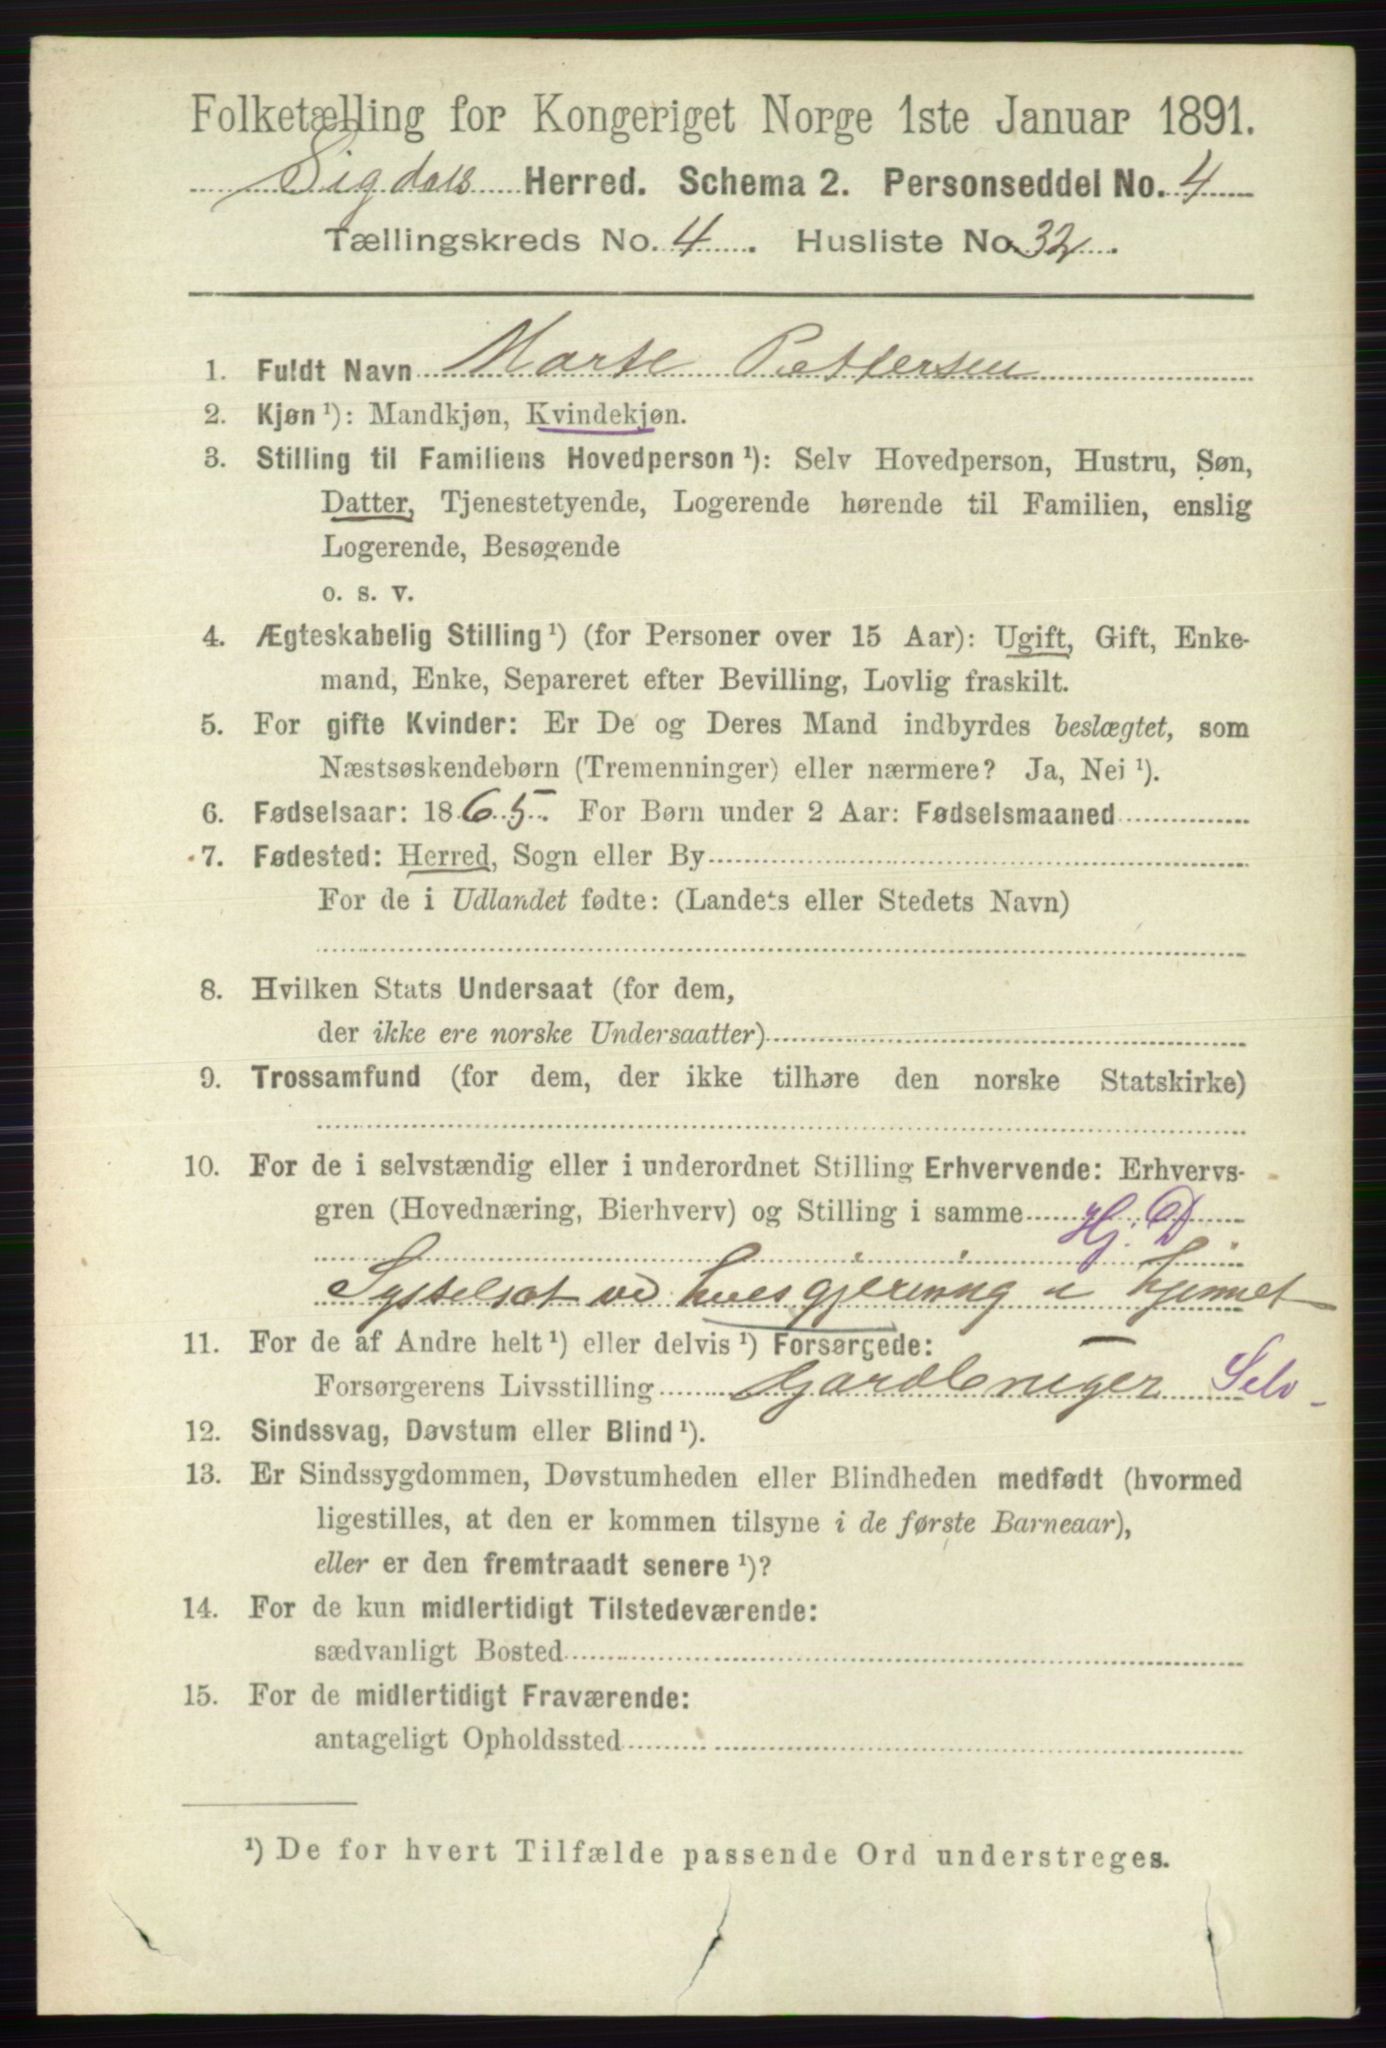 Folketælling for Kongeriget Norge 1ste Januar 1891.
Sigdals Herred. Schema 2. Personseddel No. 4
Tællingskreds No. 4. Husliste No. 32.
1. Fuldt Navn Marte Pettersen
2. Kjøn ¹): Mandkjøn, Kvindekjøn.
3. Stilling til Familiens Hovedperson ¹): Selv Hovedperson, Hustru, Søn,
Datter, Tjenestetyende, Logerende hørende til Familien, enslig
Logerende, Besøgende
o. s. v.
4. Ægteskabelig Stilling ¹) (for Personer over 15 Aar): Ugift, Gift, Enke-
mand, Enke, Separeret efter Bevilling, Lovlig fraskilt.
5. For gifte Kvinder: Er De og Deres Mand indbyrdes beslægtet, som
Næstsøskendebørn (Tremenninger) eller nærmere? Ja, Nei ¹).
6. Fødselsaar: 1865. For Børn under 2 Aar: Fødselsmaaned
7. Fødested: Herred, Sogn eller By
For de i Udlandet fødte: (Landets eller Stedets Navn)
8. Hvilken Stats Undersaat (for dem,
der ikke ere norske Undersaatter)
9. Trossamfund (for dem, der ikke tilhøre den norske Statskirke)
10. For de i selvstændig eller i underordnet Stilling Erhvervende: Erhvervs-
gren (Hovednæring, Bierhverv) og Stilling i samme Hj. D
Sysselsat ve huesgjerning i hjemmet
11. For de af Andre helt ¹) eller delvis ¹) Forsørgede:
Forsørgerens Livsstilling Gardbruger Selv
12. Sindssvag, Døvstum eller Blind ¹).
13. Er Sindssygdommen, Døvstumheden eller Blindheden medfødt (hvormed
ligestilles, at den er kommen tilsyne i de første Barneaar),
eller er den fremtraadt senere ¹)?
14. For de kun midlertidigt Tilstedeværende:
sædvanligt Bosted
15. For de midlertidigt Fraværende:
antageligt Opholdssted
¹) De for hvert Tilfælde passende Ord understreges.